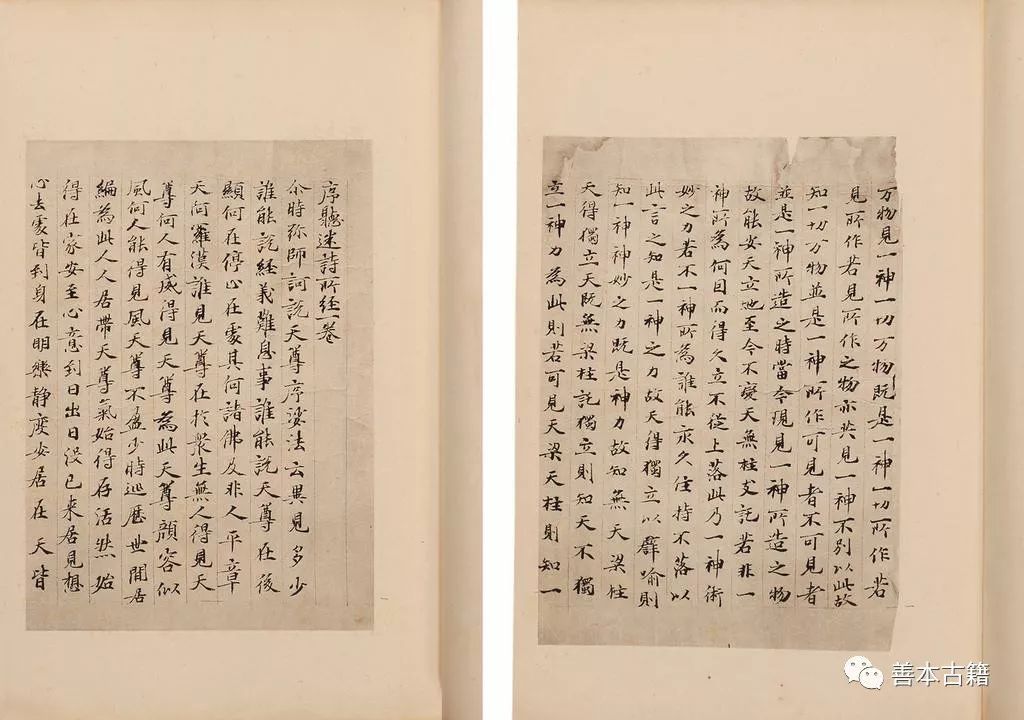 万物見一神一切万物既是一神一切所作若
見所作若見所作之物亦共見一神不別以此故
知一切万物並是一神所作可見者不可見者
並是一神所造之時當今現見一神所造之物
故能安天立地至今不變天無柱支託若非一
神所為何因而得久立不從上落此乃一神術
妙之力若不一神所為誰能永久住持不落以
此言之知是一神之力故天得獨立以譬喻則
知一神神妙之力既是神力故知無天梁柱
天得獨立天既無梁柱託獨立則知天不獨
立一神力為此則若可見天梁天柱則知一
序聽迷詩所經一卷
尒時弥師訶說天尊序娑法云異見多少
誰能說經義難息事誰能說天尊在後
顯何在停止在處其何諸佛及非人平章
天阿羅漢誰見天尊在於衆生無人得見天
尊何人有威得見天尊為此天尊顏容似
風何人能得見風天尊不盈少時巡歷世間居
編為此人人居帶天尊氣始得存活然始
得在家安至心意到日出日没已来居見想
心去處皆到身在明樂静度安居在天皆
善本古籍